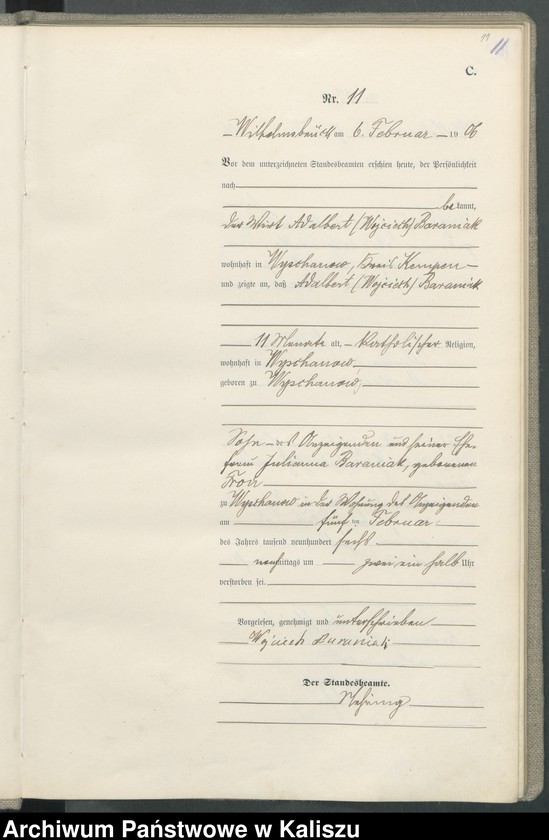 11 11
C.
Nr. 11
Wilhelmsbrück am 6. Februar 1906
Vor dem unterzeichneten Standesbeamten erschien heute, der Persönlichkeit
nach
bekannt,
der Wirt Adalbert (Wojciech) Baraniak
wohnhaft in Wyschanow, Kreis Kempen
und zeigte an, daß Adalbert (Wojciech) Baraniak
11 Monate alt, katholischer Religion,
wohnhaft in Wyschanow,
geboren zu Wyschanow,
Sohn des Anzeigenden und seiner Ehe-
frau Julianna Baraniak, geborenen
zu Wyschanow in der Wohnung des Anzeigenden
am fünf ten Februar
des Jahrs tausend neunhundert sechs
nachmittags um zwei ein halb Uhr
verstorben sei.
Vorgelesen, genehmigt und unterschrieben
Wojciech Baraniak
Der Standesbeamte.
Nehring
Archiwum Państwowe w Kaliszu